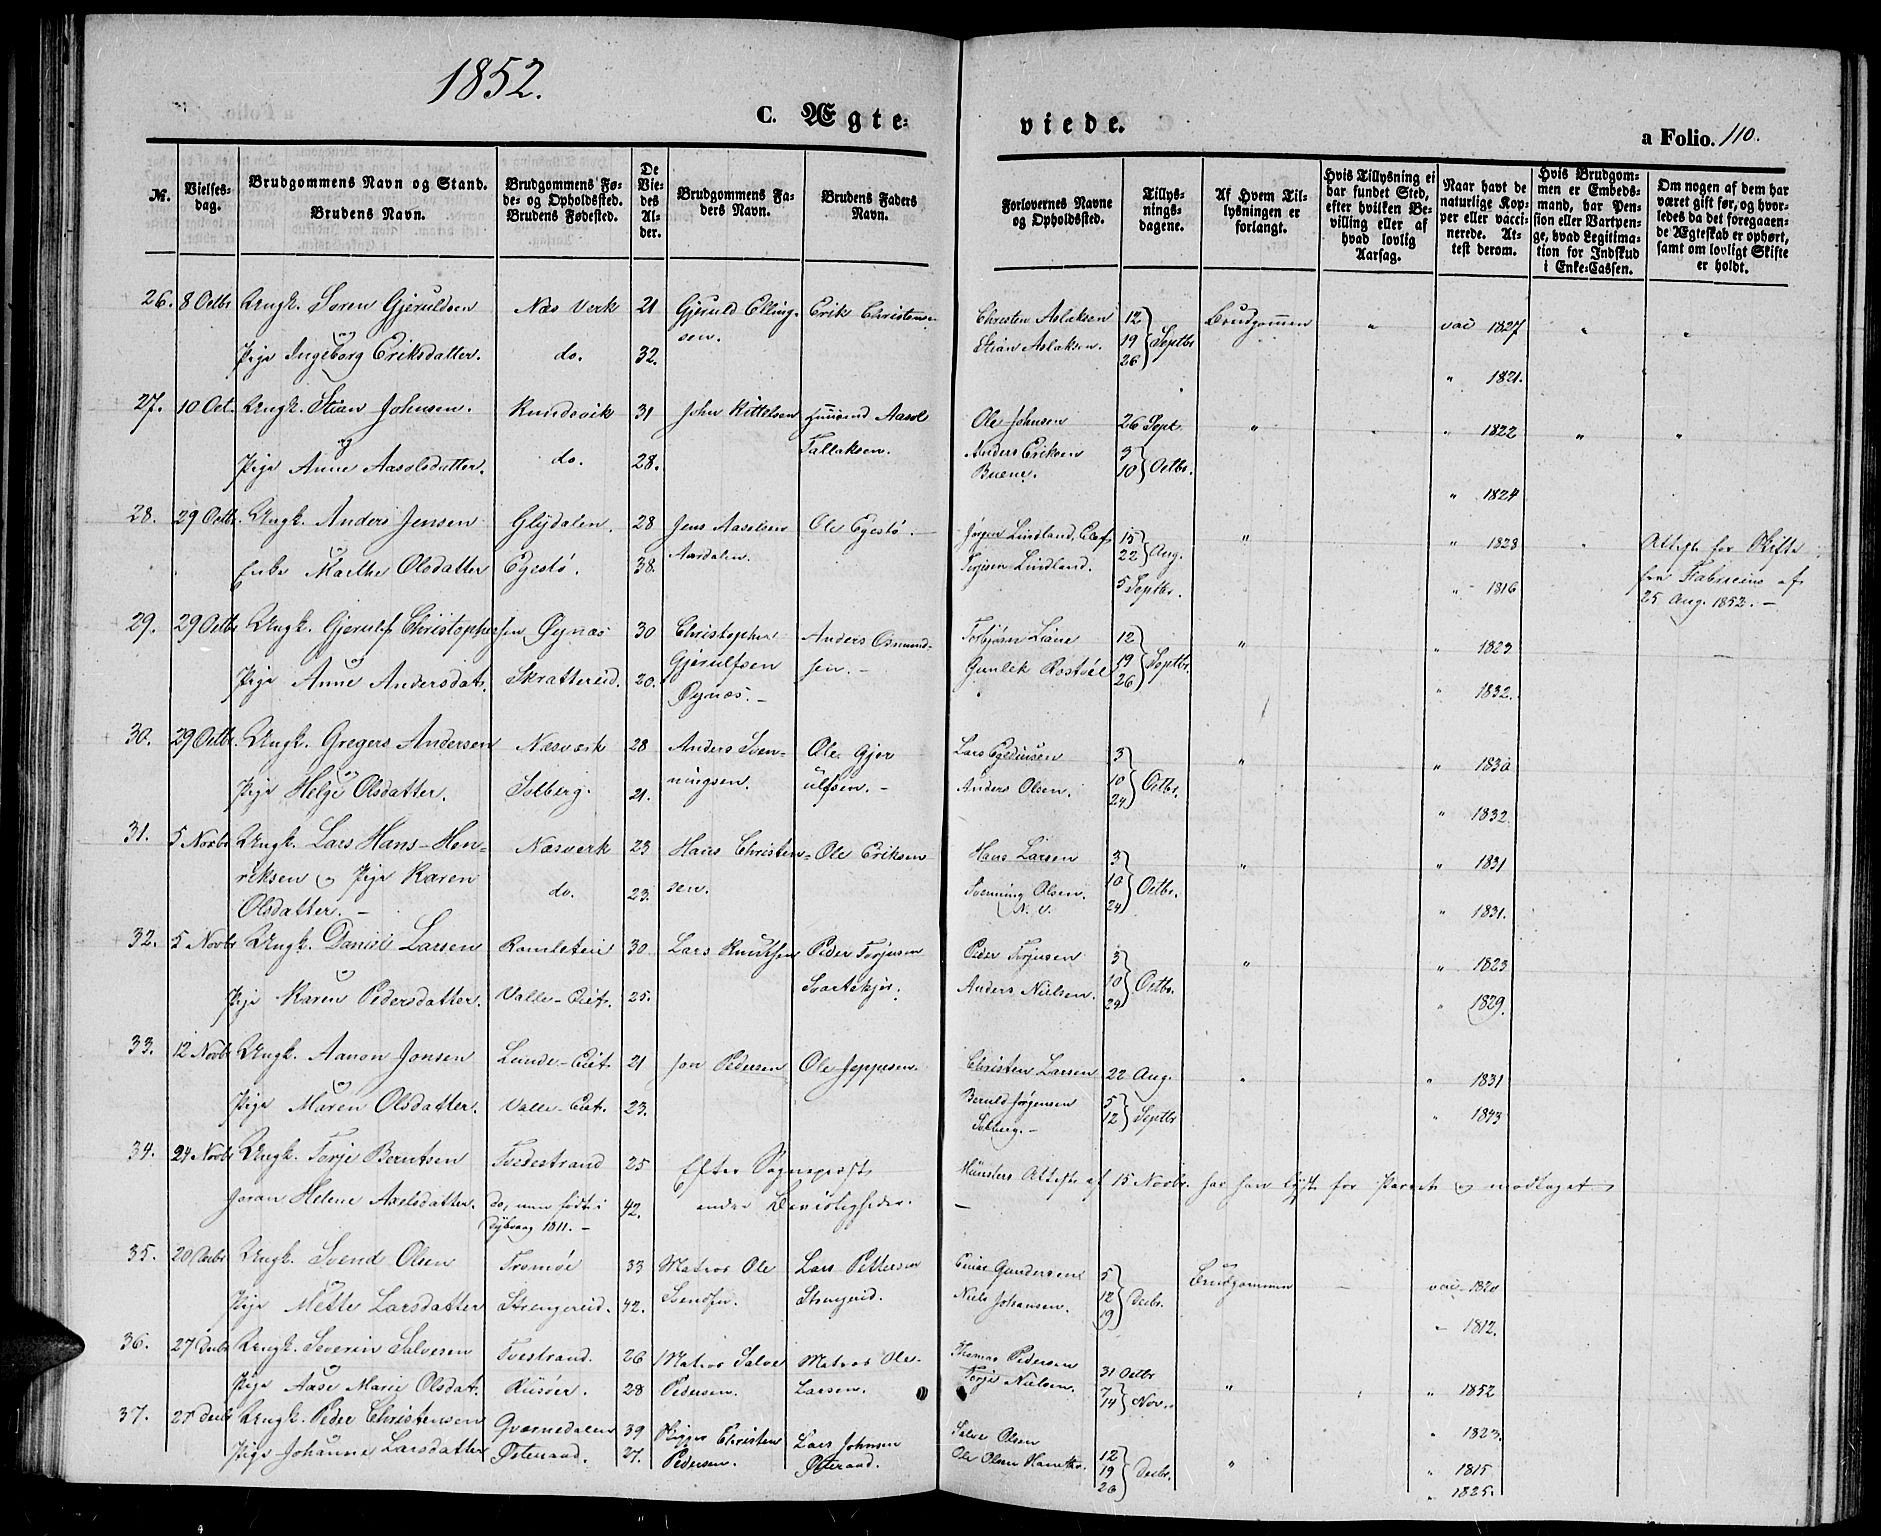 1852.
C. Ægte-
viede.
a Folio. 110.
№.
Vielses-
dag.
Brudgommens Navn og Stand.
Brudens Navn.
Brudgommens Fø-
de- og Opholdssted.
Brudens Fødested.
De
Vie-
des
Al-
der.
Brudgommens Fa-
ders Navn.
Brudens Faders
Navn.
Forlovernes Navne
og Opholdssted.
Tillys-
nings-
dagene.
Af Hvem Til-
lysningen er
forlangt.
Hvis Tillysning ei
har fundet Sted,
efter hvilken Be-
villing eller af
hvad lovlig
Aarsag.
Naar havt de
naturlige Kop-
per eller vacci-
nerede. At-
test derom.
Hvis Brudgom-
men er Embeds-
mand, har Pen-
sion eller Vartpen-
ge, hvad Legitima-
tion for Indskud
i Enke-Cassen.
Om nogen af dem har
været gift før, og hvor-
ledes da det foregaaen-
de Ægteskab er ophørt,
samt om lovligt Skifte
er holdt.
26. 8 Octbr Ungk. Søren Gjeruldsen Næs Verk 21 Gjeruld Elling- Erik Christensen Christen Aslaksen 12 Brudgommen " vac 1827 " "
og sen. Stian Aslaksen. 19 Septbr
Pige Ingeborg Eriksdatter. do. 32. 26
" 1821.
27. 10 Oct. Ungk. Stian Johnsen. 31 John Kittelsen Aasol Ole Johnsen 26 Sept. " " 1822 " "
og Tallaksen. Anders Eriksen 3
Pige Anne Aasolsdatter. do. 28. Buene. 10 Octbr.
" 1824
28. 29 Octbr. Ungk. Anders Jensen Glydalen. 28 Jens Aaselsen Ole Egestø. Jørgen Lindland, 15 " " 1828 " Attest for Skifte
og Aardalen. 22 Aug.
Enke Marthe Olsdatter Egestø. 38. Lindland. 5 Septbr. " 1816 fra af
25 Aug. 1852. -
29. 29 Octbr Ungk. Gjerulf Christophersen Øynæs 30 Christopher Anders Osmund- Torbjørn Liane 12 " " 1823
og Gjerulfsen sen. - Gunlek Rostøl 19 Septbr.
Pige Anne Andersdatr. Skrattereid. 20. Øynæs. - 26 " 1832.
30. 29 Octbr. Ungk. Gregers Andersen Næsverk 28 Anders Sven- Ole Gjer Lars Egedeusen 3 " " 1830
og ningsen. ulfsen. - 10 Octbr.
Pige Helge Olsdatter. Solberg. 21. Anders Olsen. 24 " 1832.
31. 5 Novbr Ungk. Lars Hans-Hen- Næsverk 23 Hans Christen- Ole Eriksen Hans Larsen 3 " " 1831
riksen og Pige Karen do. 23. sen. Svenning Olsen. 10 Octbr.
Olsdatter. - N. V. 24 " 1831.
32. 5 Novbr Ungk. Daniel Larsen Ramleteie 30. Lars Knutsen Peder Torjusen Peder Torjusen 3 " " 1823
og Svartekjær. 10 Octbr.
Pige Karen Pedersdatter. Valle-Eiet. 25. Anders Nielsen. 29 " 1829.
33. 12 Novbr Ungk. Aanon Jonsen Lunde-Eiet 21 Jon Pedersen Ole Jeppesen. Christen Larsen 22 Aug. " " 1831
og Berulf Jørgensen 5
Pige Maren Olsdatter. Valle-Eiet. 23. Solberg. - 12 Septbr " 1843
34. 24 Novbr Ungk. Terje Berntsen Tvedestrand 25 Efter Sognepræst Münsters Attest af 15 Novbr. har han lyst for Parret og modtaget
Joran Helene Axelsdatter. do, men født i 42. andre Beviisligheder. -
Dybvaag 1811. -
35. 20 Decbr Ungk. Svend Olsen Tromøe 33 Matros Ole Lars Pettersen Einar Gundersen 5 Brudgommen - vac 1820
og Svendsen. Strengereid. 12 Decbr.
Pige Mette Larsdatter Strengereid. 42. Niels Johansen. 19 " 1812.
36. 27 Decbr Ungk. Severin Salvesen Tvestrand. 26 Matros Salve Matros Ole Thomas Pedersen 31 Octbr
og Terje Nielsen. 7
Pige Aase Marie Olsdat. Riisøer. 28 Pedersen. Larsen. 14 Nov. " " " 1852
37. 27 Decbr Ungk. Peder Christensen Qvarnedalen 39 Skipper Christen Lars Johnsen Salve Olsen 12 " 1823.
Pige Johanne Larsdatter Østeraad. 27. Pedersen. Østeraad. Ole Olsen 19 Decbr. " " 1815
26 " 1825.